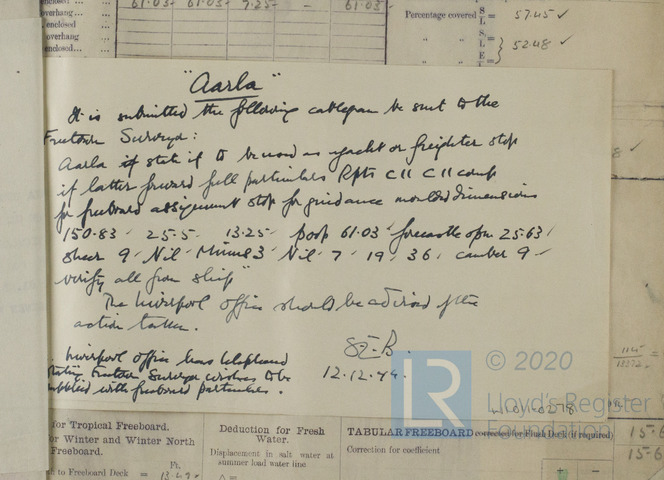 enclosed ... 61.03 61.03 7.25 - 61.03
overhang...
enclosed
overhang
enclosed...
Percentage covered S = 57.45 ✓
L
" " S
L = 52.48 ✓
E
" " L
"Aarla"
It is submitted the following cablegram be sent to the
Freetown Surveyor:
Aarla state if to be used as yacht or freighter stop
if latter forward full particulars Rpts C11 C11 comp
for freeboard assignment stop for guidance moulded dimensions
150.83' 25.5 13.25 poop 61.03' forecastle open 25.63'
sheer 9' Nil Minus 3' Nil 7' 19' 36' camber 9
verify all from ship"
The Liverpool office should be advised of the
action taken.
12.12.44.
Liverpool office have telephoned
stating Freetown Surveyor wishes to be
with freeboard particulars.
LR
© 2020
Lloyd's Register
Foundation
for Tropical Freeboard.
or Winter and Winter North
Freeboard.
Ft.
to Freeboard Deck =
Deduction for Fresh
Water.
Displacement in salt water at
summer load water line
Δ =
TABULAR FREEBOARD corrected for Flush Deck (if required)
Correction for coefficient
+ -
15.6
15.6